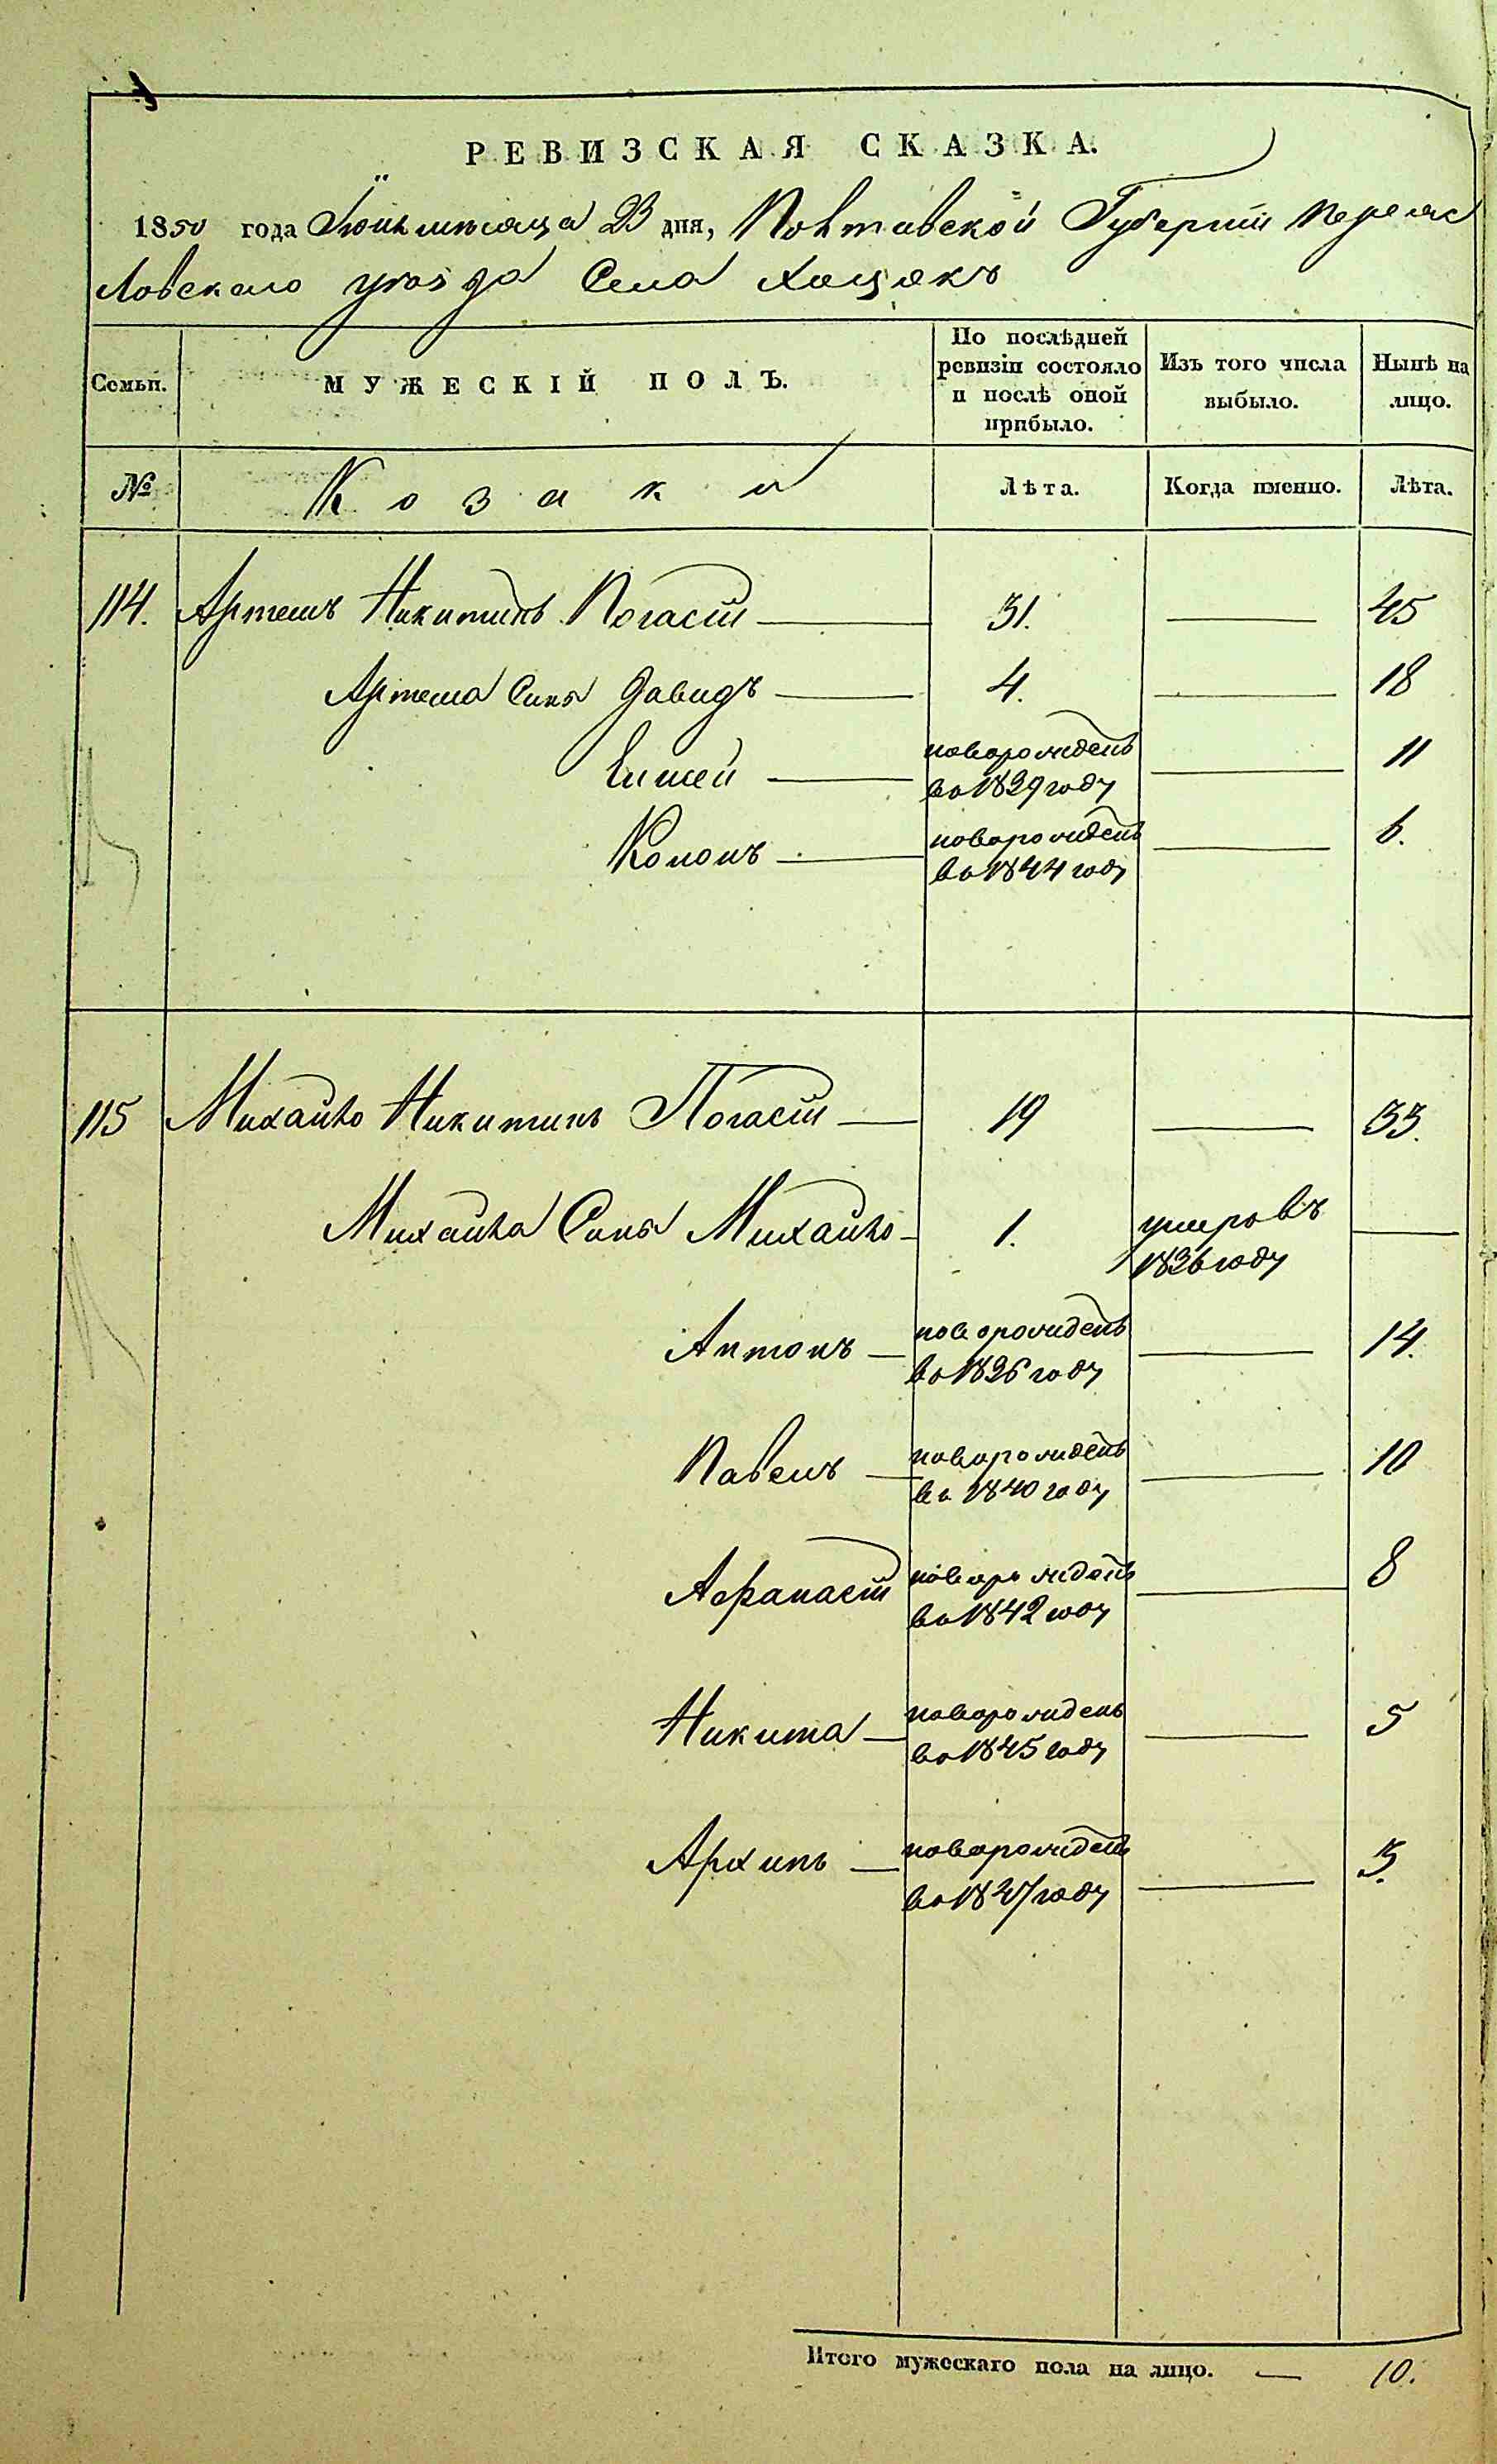 РЕВИЗСКАЯ СКАЗКА.
1850 года Іюнь мѣсяца 23 дня, Полтавской Губерніи Переяс
ловскаго уѣзда Села Хоцокъ
Семьи.
МУЖЕСКІЙ ПОЛЪ.
По послѣдней
ревизіи состояло
и послѣ оной
прибыло.
Изъ того числа
выбыло.
Нынѣ на
лицо.
№
Козаки
Лѣта.
Когда именно.
Лѣта.
114. Артемъ Никитинъ Погасій 31. 45
Артема Сынъ Давидъ 4. 18
новорожденъ
во 1839 году 11
Кононъ новорожденъ 6.
во 1844 году
115 Михайло Никитинъ Погасій 19 33.
Михайла Сынъ Михайло 1. умеръ въ
1836 году
Антонъ новорожденъ 14.
во 1836 году
Павелъ новорожденъ 10
во 1840 году
Афанасій новорожденъ 8
во 1842 году
Никита новорожденъ 5
во 1845 году
Архипъ новорожденъ 3.
во 1847 году
Итого мужескаго пола на лицо. 10.